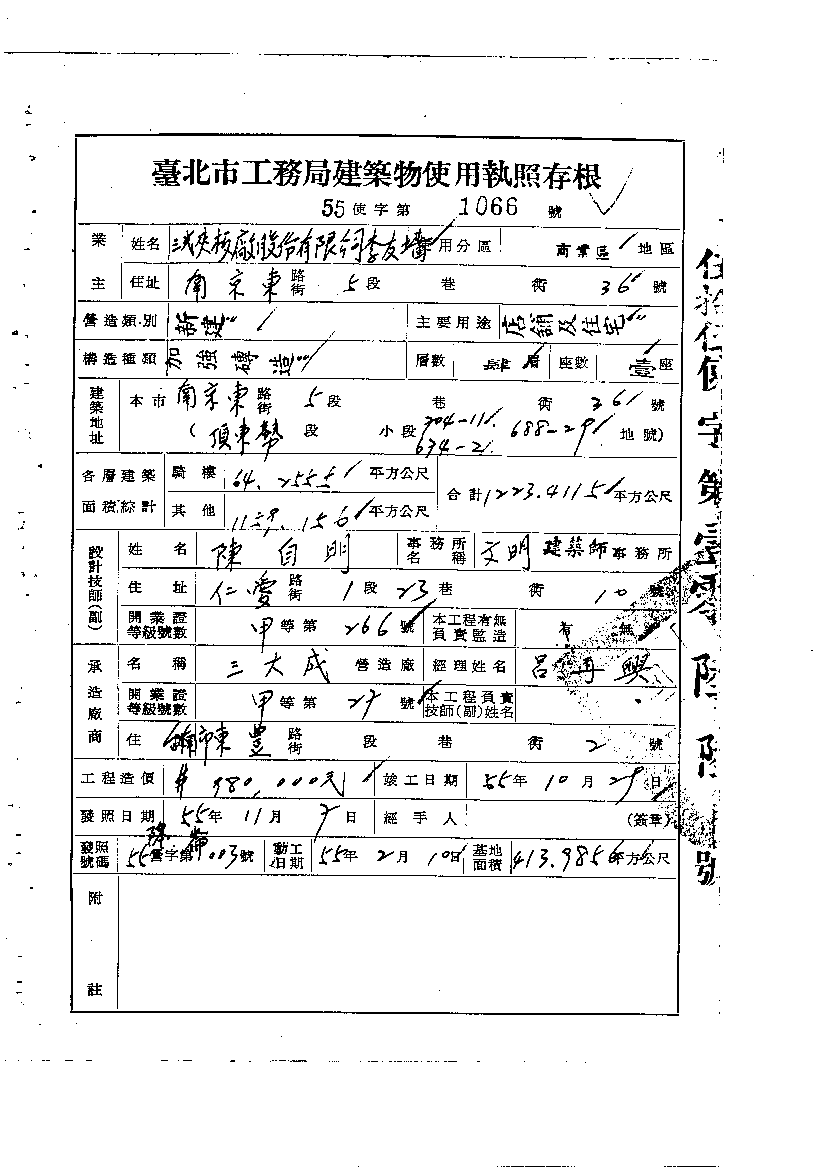 臺北市工務局建築物使用執照存根
55使字第 1066 號
業主 姓名 夾板廠股份有限公司李友 用分區 商業區 地區
住址 南京東路街 5段 巷 街 36 號
營造類別 新建 主要用途 店舖及住宅
構造種類 加強磚造 層數 肆層 座數 壹座
建築地址 本市 南京東路街 5段 巷 街 36 號
(頂東勢段 小段 204-11 634-2 688-29 地號)
各層建築面積綜計 騎樓 64.2555 平方公尺 合計 1223.4115 平方公尺
其他 156 平方公尺
設計技師(副) 姓名 陳自明 事務所名稱 文明建築師事務所
住址 仁愛路街 1段 23巷 街 10號
開業證等級號數 甲等第 266 號 本工程有無負責監造 有 無
承造廠商 名稱 三大成 營造廠 經理姓名 呂再興
開業證等級號數 甲等第 27 號 本工程負責技師(副)姓名
住 市東豐路街 段 巷 街 2 號
工程造價 980,000元 竣工日期 55年10月29日
發照日期 55年11月 日 經手人 (簽章)
發照號碼 55 字第003號 動工日期 55年2月10日 基地面積 413.9856平方公尺
附註
伍拾伍使字第壹零陸陸號